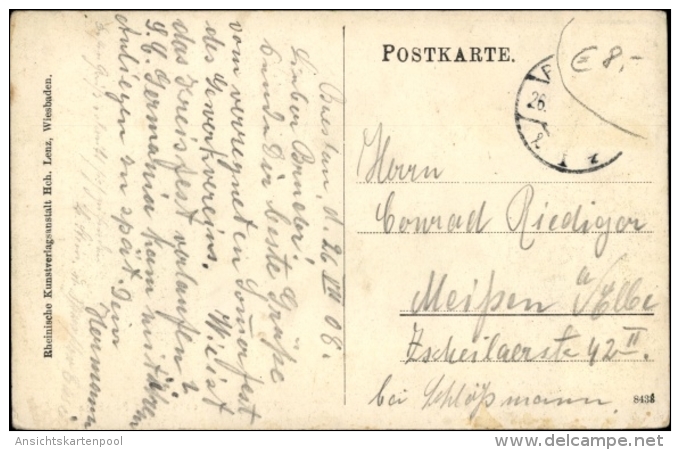 POSTKARTE.
€ 8,-
26.
8.
Breslau, d. 26. VII 08.
Lieber Bruder!
sende Dir beste Grüße
vom verregneten Sommerfest
des Gewerkvereins. Wie ist
das Kreisfest verlaufen?
S.C. Germania kam mit ihren
Anliegen zu spät. Dein
Hermann
Herrn
Conrad Riediger
Meißen a/Elbe
Zscheilaerstr 42 II.
bei Schlößmann.
Rheinische Kunstverlagsanstalt Hch. Lenz, Wiesbaden.
8438
Ansichtskartenpool
www.delcampe.net